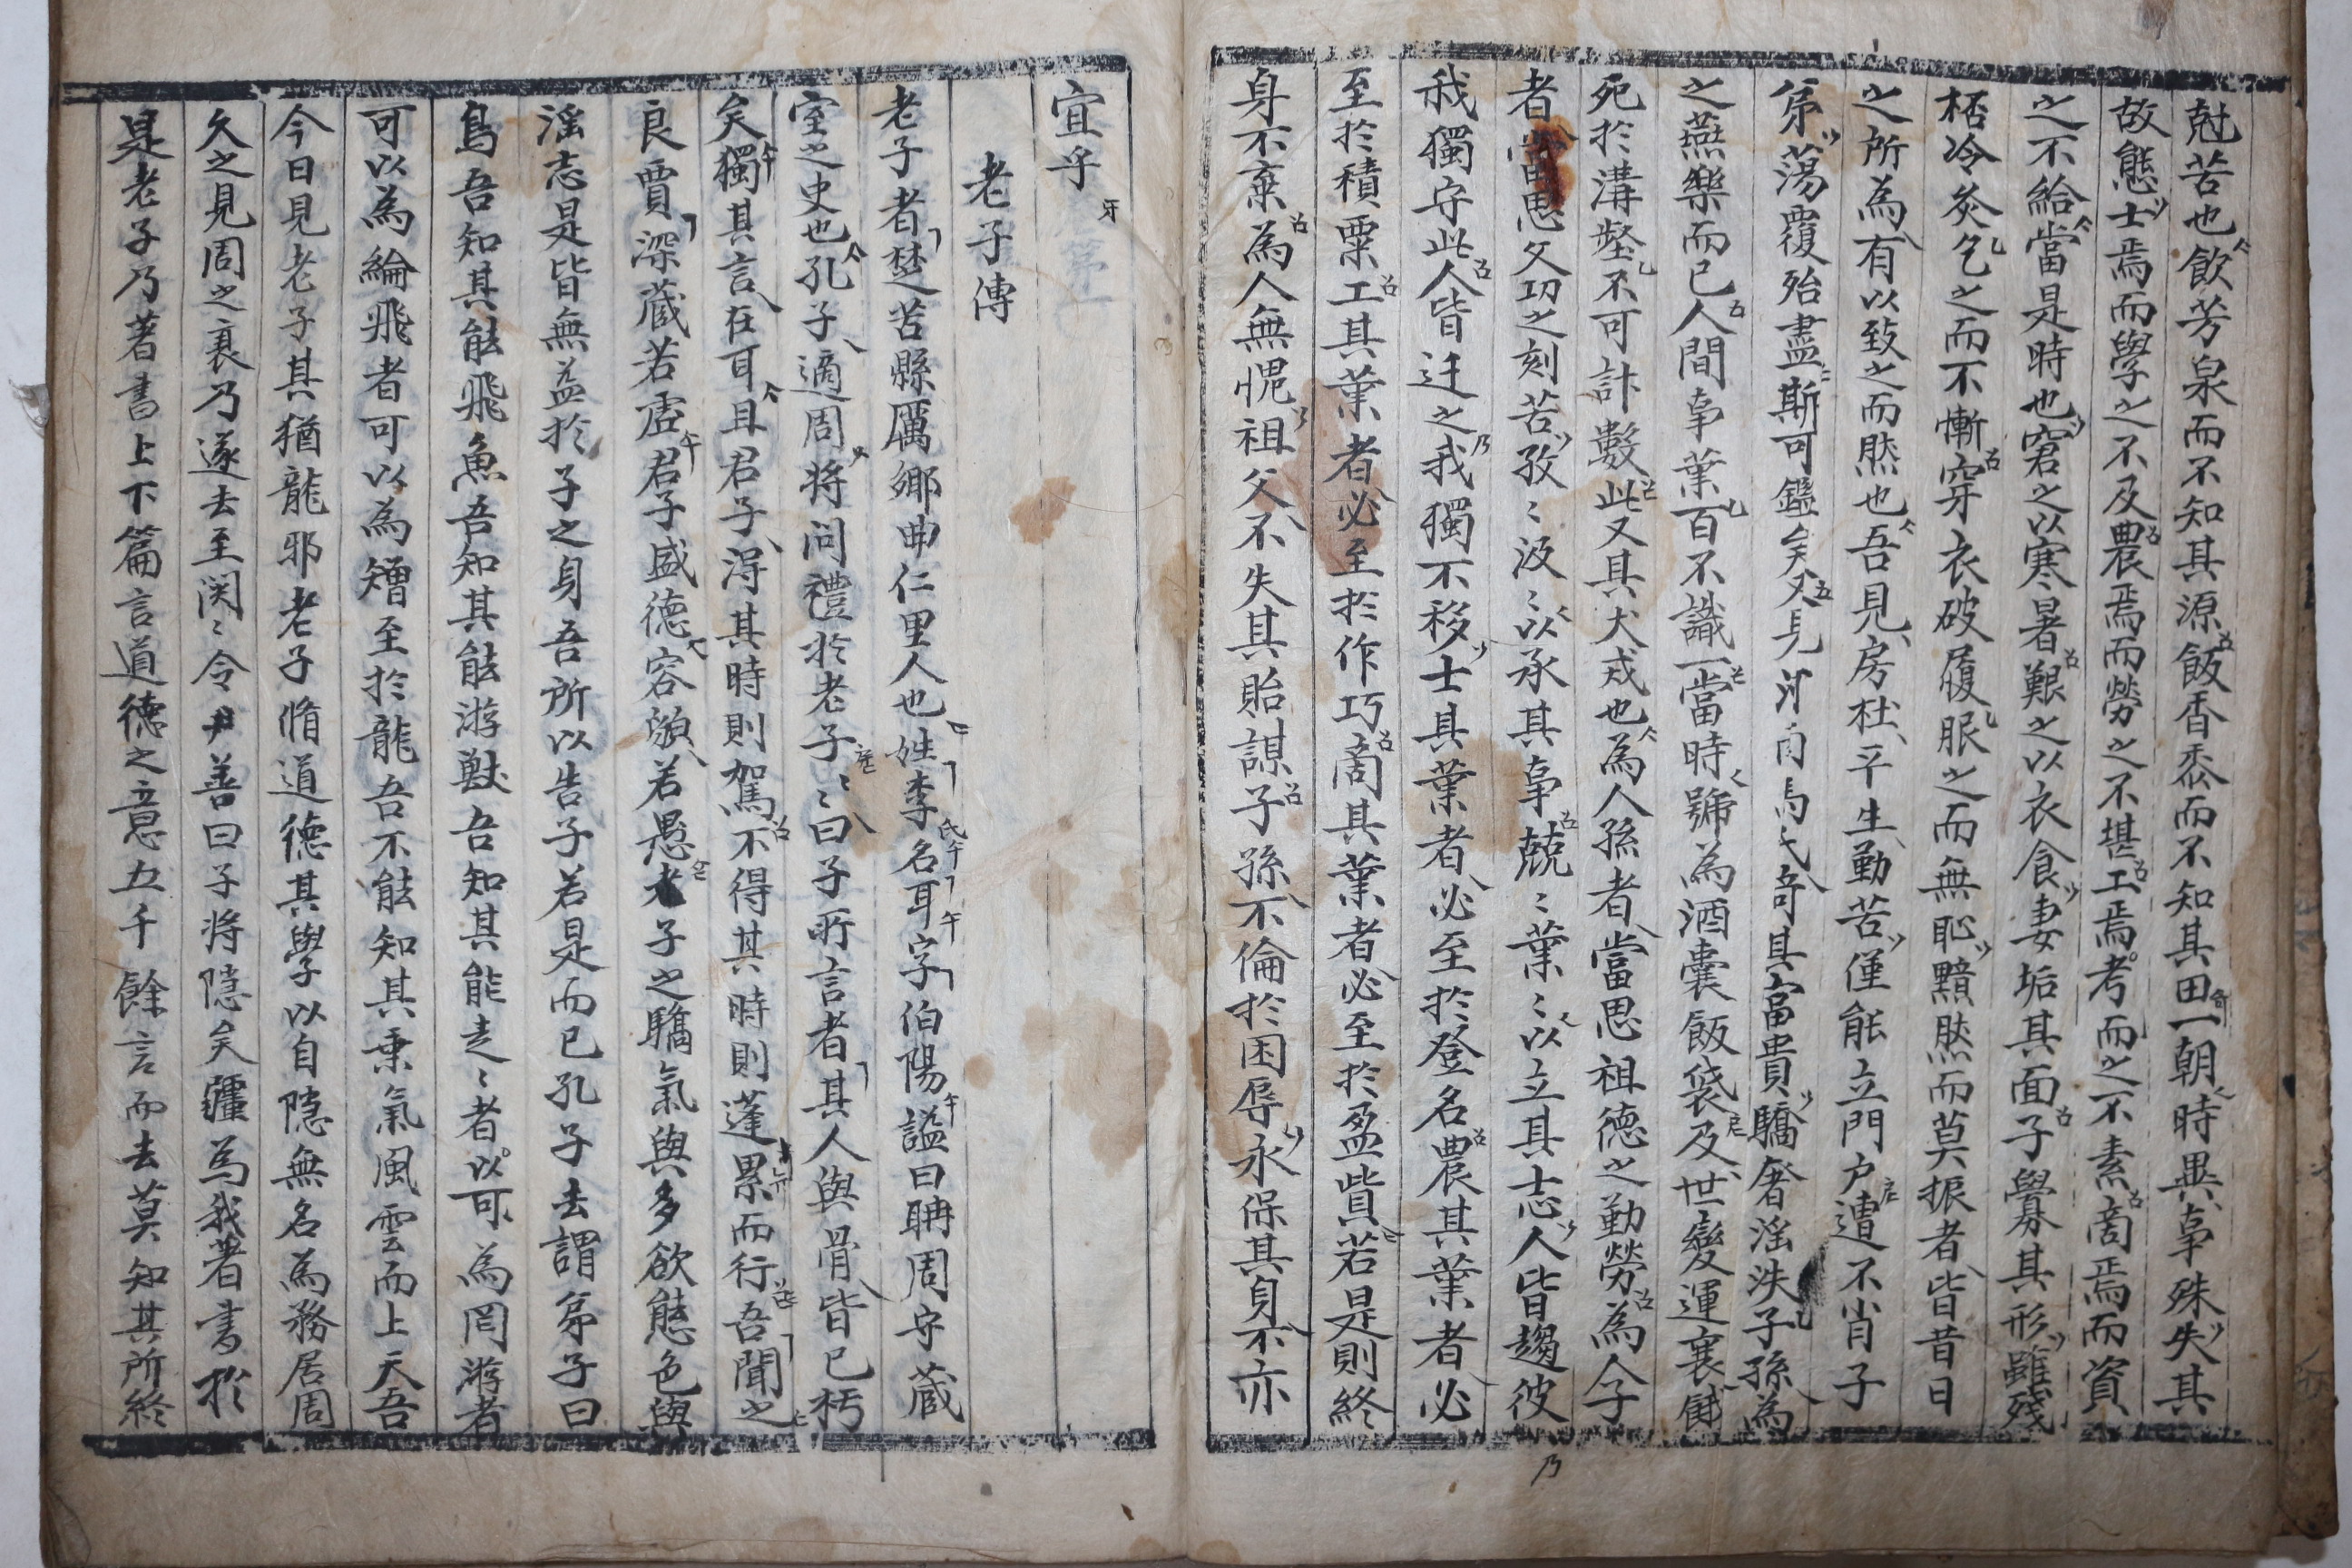 尅苦也飲芳泉而不知其源飯香黍而不知其田一朝時異事殊失其
故態士焉而學之不及農焉而勞之不堪工焉考而之不素商焉而資
之不給當是時也窘之以寒暑艱之以衣食妻垢其面子釁其形雖殘
桮冷炙乞之而不慚穿衣破履服之而無恥黯然而莫振者皆昔日
之所為有以致之而然也吾見房杜平生勤苦僅能立門戶遭不肖子
弟蕩覆殆盡斯可鑑矣又見河南馬氏奇其富貴驕奢淫泆子孫為
之燕樂而已人間事業百不識一當時號為酒囊飯袋及世變運衰餓
死於溝壑不可計數此又其大戒也為人孫者當思祖德之勤勞為人子
者當思父功之刻苦孜〻汲〻以承其事兢〻業〻以立其志人皆趨彼
我獨守此人皆迁之我獨不移士其業者必至於登名農其業者必
至於積粟工其業者必至於作巧商其業者必至於盈貲若是則終
身不棄為人無愧祖父不失其貽謀子孫不倫於困辱永保其身不亦
宜乎
老子傳
老子者楚苦縣厲鄉曲仁里人也姓李名耳字伯陽謚曰聃周守藏
室之史也孔子適周將問禮於老子〻〻曰子所言者其人與骨皆已朽
矣獨其言在耳且君子得其時則駕不得其時則蓬累而行吾聞之
良賈深藏若虛君子盛德容貌若愚去子之驕氣與多欲態色與
淫志是皆無益於子之身吾所以告子若是而已孔子去謂弟子曰
鳥吾知其能飛魚吾知其能游獸吾知其能走〻者以可為罔游者
可以為綸飛者可以為矰至於龍吾不能知其乘氣風雲而上天吾
今日見老子其猶龍邪老子脩道德其學以自隱無名為務居周
久之見周之衰乃遂去至関〻令尹善曰子將隱矣彊為我著書於
是老子乃著書上下篇言道德之意五千餘言而去莫知其所終